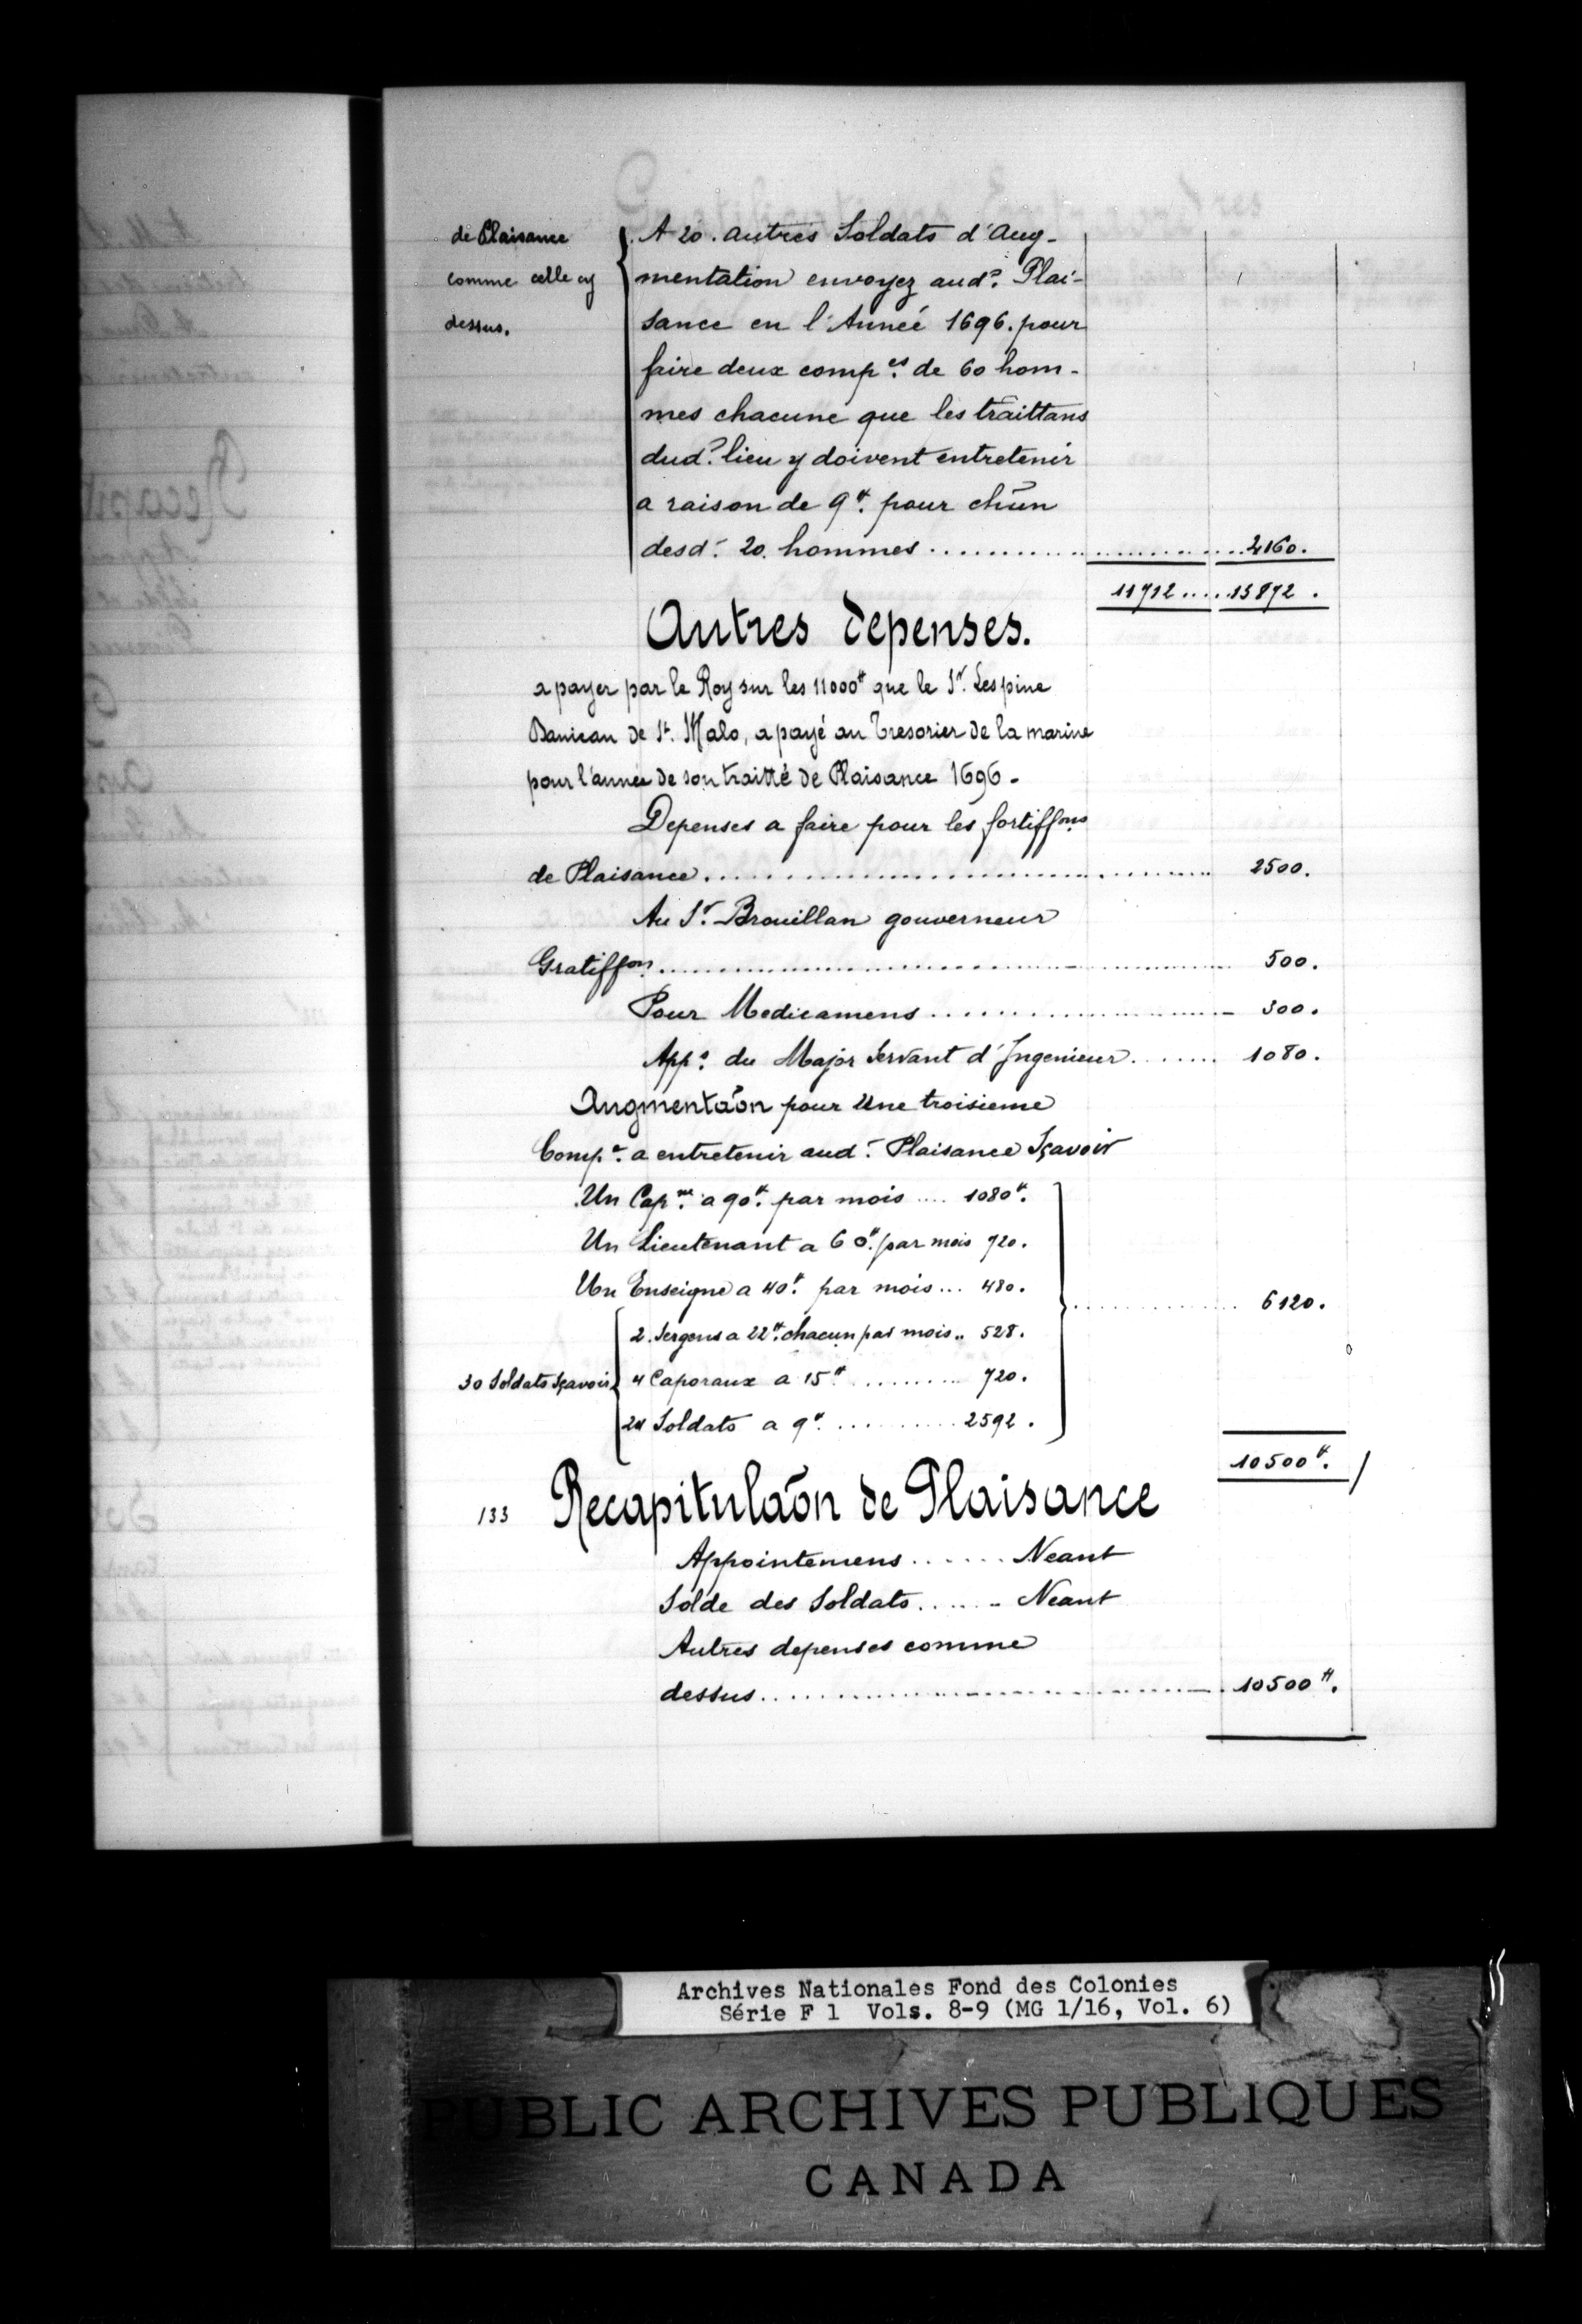 de Plaisance
comme celle cy
dessus.
A 20. autres Soldats d'Aug-
mentation envoyez aud? Plai-
sance en l'Année 1696. pour
faire deux comp.es de 60 hom-
mes chacune que les traittans
dud? lieu y doivent entretenir
a raison de 9#. pour chũn
desd. 20. hommes .................... 2160.
11712 .... 13872.
Autres depenses.
a payer par le Roy sur les 11000# que le Sr. Lespine
de St. Malo, a payé au Tresorier de la marine
pour l'année de son traitté de Plaisance 1696 -
Depenses a faire pour les fortiffons
de Plaisance .................... 2500.
Au Sr. Brouillan gouverneur
Gratiffon .................... 500.
Pour Medicamens .................... 300.
App.s du Major servant d'Ingenieur ........ 1080.
Augmentaõn pour Une troisieme
Comp.e a entretenir aud. Plaisance Sçavoir
Un Cap.ne a 90#. par mois .... 1080#.
Un Lieutenant a 60#. par mois 720.
Un Enseigne a 40#. par mois ... 480.
.................... 6120.
2. Sergens a 22#. chacun par mois .. 528.
30 Soldats Sçavoir
4 Caporaux a 15# .......... 720.
24 Soldats a 9#. .......... 2592.
10500#.
133 Recapitulaõn de Plaisance
Appointemens ...... Neant
Solde des Soldats ...... Neant
Autres depenses comme
dessus .................... 10500#.
Archives Nationales Fond des Colonies
Série F 1 Vols. 8-9 (MG 1/16, Vol. 6)
PUBLIC ARCHIVES PUBLIQUES
CANADA